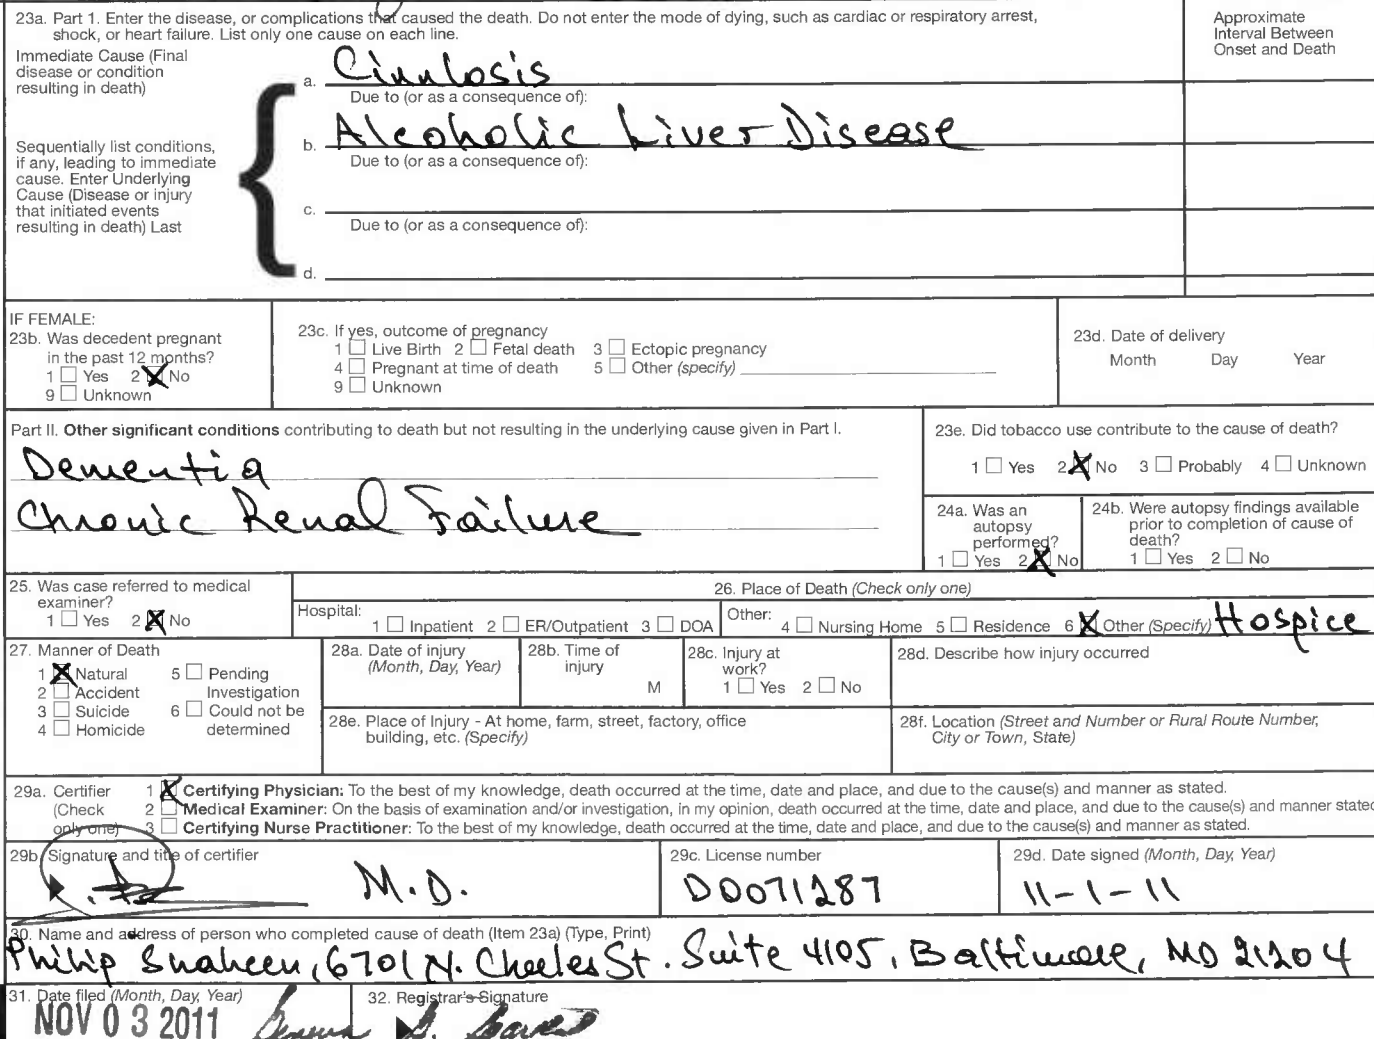 23a. Part 1. Enter the disease, or complications that caused the death. Do not enter the mode of dying, such as cardiac or respiratory arrest,
shock, or heart failure. List only one cause on each line.
Approximate
Interval Between
Onset and Death
Immediate Cause (Final
disease or condition
resulting in death)
a. Cirrhosis
Due to (or as a consequence of):
Sequentially list conditions,
if any, leading to immediate
cause. Enter Underlying
Cause (Disease or injury
that initiated events
resulting in death) Last
b. Alcoholic Liver Disease
Due to (or as a consequence of):
c.
Due to (or as a consequence of):
d.
IF FEMALE:
23b. Was decedent pregnant
in the past 12 months?
1 ☐ Yes 2 ☒ No
9 ☐ Unknown
23c. If yes, outcome of pregnancy
1 ☐ Live Birth 2 ☐ Fetal death 3 ☐ Ectopic pregnancy
4 ☐ Pregnant at time of death 5 ☐ Other (specify)
9 ☐ Unknown
23d. Date of delivery
Month Day Year
Part II. Other significant conditions contributing to death but not resulting in the underlying cause given in Part I.
Dementia
Chronic Renal Failure
23e. Did tobacco use contribute to the cause of death?
1 ☐ Yes 2 ☒ No 3 ☐ Probably 4 ☐ Unknown
24a. Was an
autopsy
performed?
1 ☐ Yes 2 ☒ No
24b. Were autopsy findings available
prior to completion of cause of
death?
1 ☐ Yes 2 ☐ No
25. Was case referred to medical
examiner?
1 ☐ Yes 2 ☒ No
26. Place of Death (Check only one)
Hospital: 1 ☐ Inpatient 2 ☐ ER/Outpatient 3 ☐ DOA
Other: 4 ☐ Nursing Home 5 ☐ Residence 6 ☒ Other (Specify) Hospice
27. Manner of Death
1 ☒ Natural 5 ☐ Pending
2 ☐ Accident Investigation
3 ☐ Suicide 6 ☐ Could not be
4 ☐ Homicide determined
28a. Date of injury
(Month, Day, Year)
28b. Time of
injury
M
28c. Injury at
work?
1 ☐ Yes 2 ☐ No
28d. Describe how injury occurred
28e. Place of Injury - At home, farm, street, factory, office
building, etc. (Specify)
28f. Location (Street and Number or Rural Route Number,
City or Town, State)
29a. Certifier
(Check
only one)
1 ☒ Certifying Physician: To the best of my knowledge, death occurred at the time, date and place, and due to the cause(s) and manner as stated.
2 ☐ Medical Examiner: On the basis of examination and/or investigation, in my opinion, death occurred at the time, date and place, and due to the cause(s) and manner stated
3 ☐ Certifying Nurse Practitioner: To the best of my knowledge, death occurred at the time, date and place, and due to the cause(s) and manner as stated.
29b. Signature and title of certifier
M.D.
29c. License number
D0071287
29d. Date signed (Month, Day, Year)
11-1-11
30. Name and address of person who completed cause of death (Item 23a) (Type, Print)
Philip Shaheen, 6701 N. Charles St. Suite 4105, Baltimore, MD 21204
31. Date filed (Month, Day, Year)
NOV 03 2011
32. Registrar's Signature